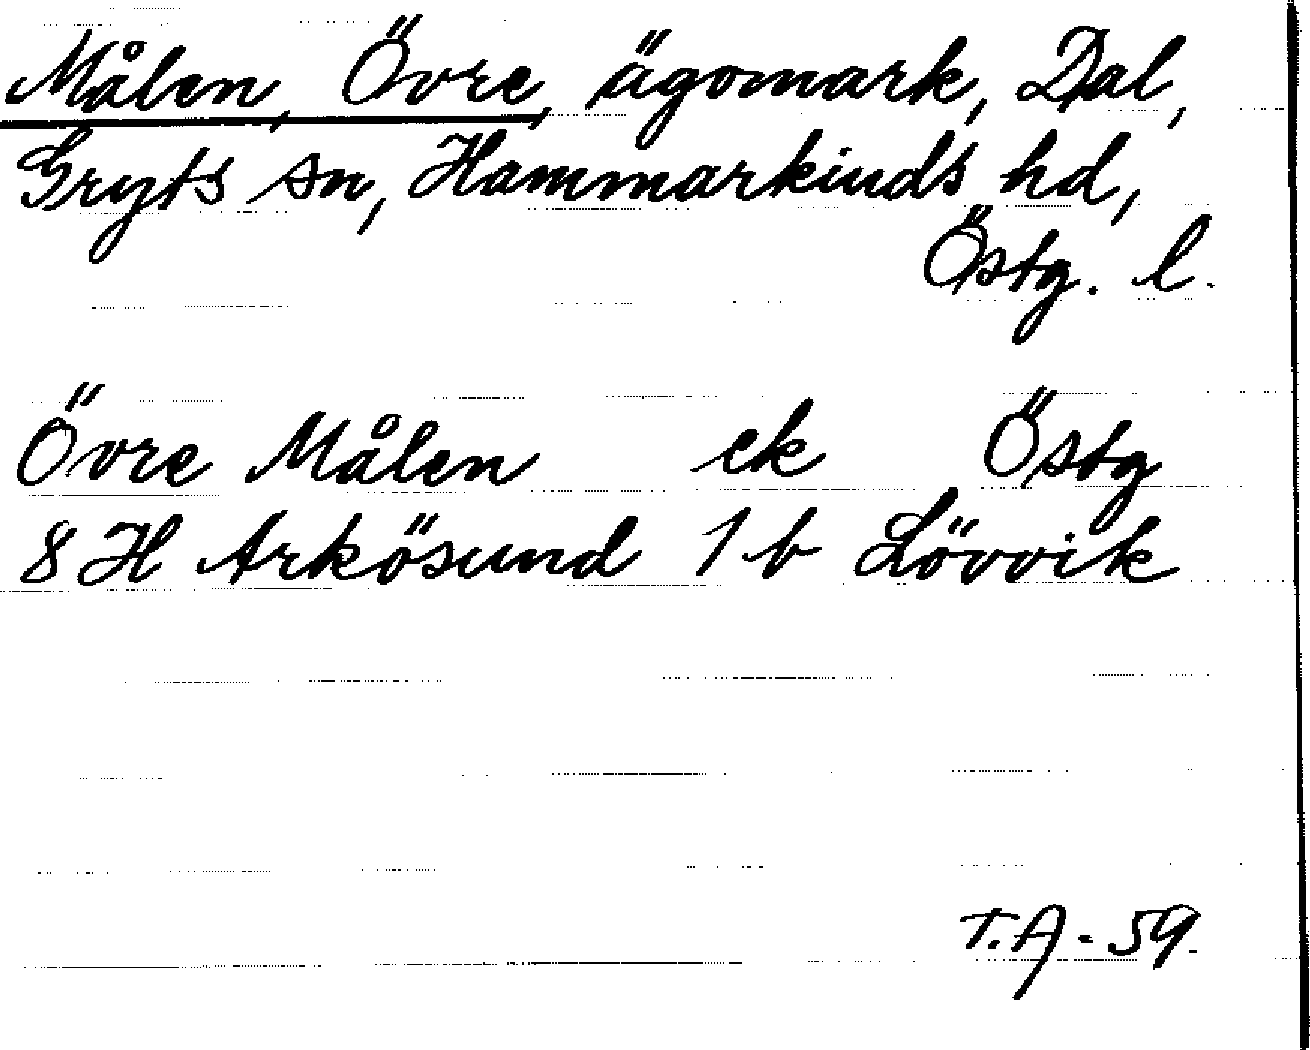 Målen, Övre, ägomark, Dal,
Gryts sn, Hammarkinds hd,
Östg. l.
Övre Målen ek Östg
8 H Arkösund 1 b Lövvik
T.A-59.